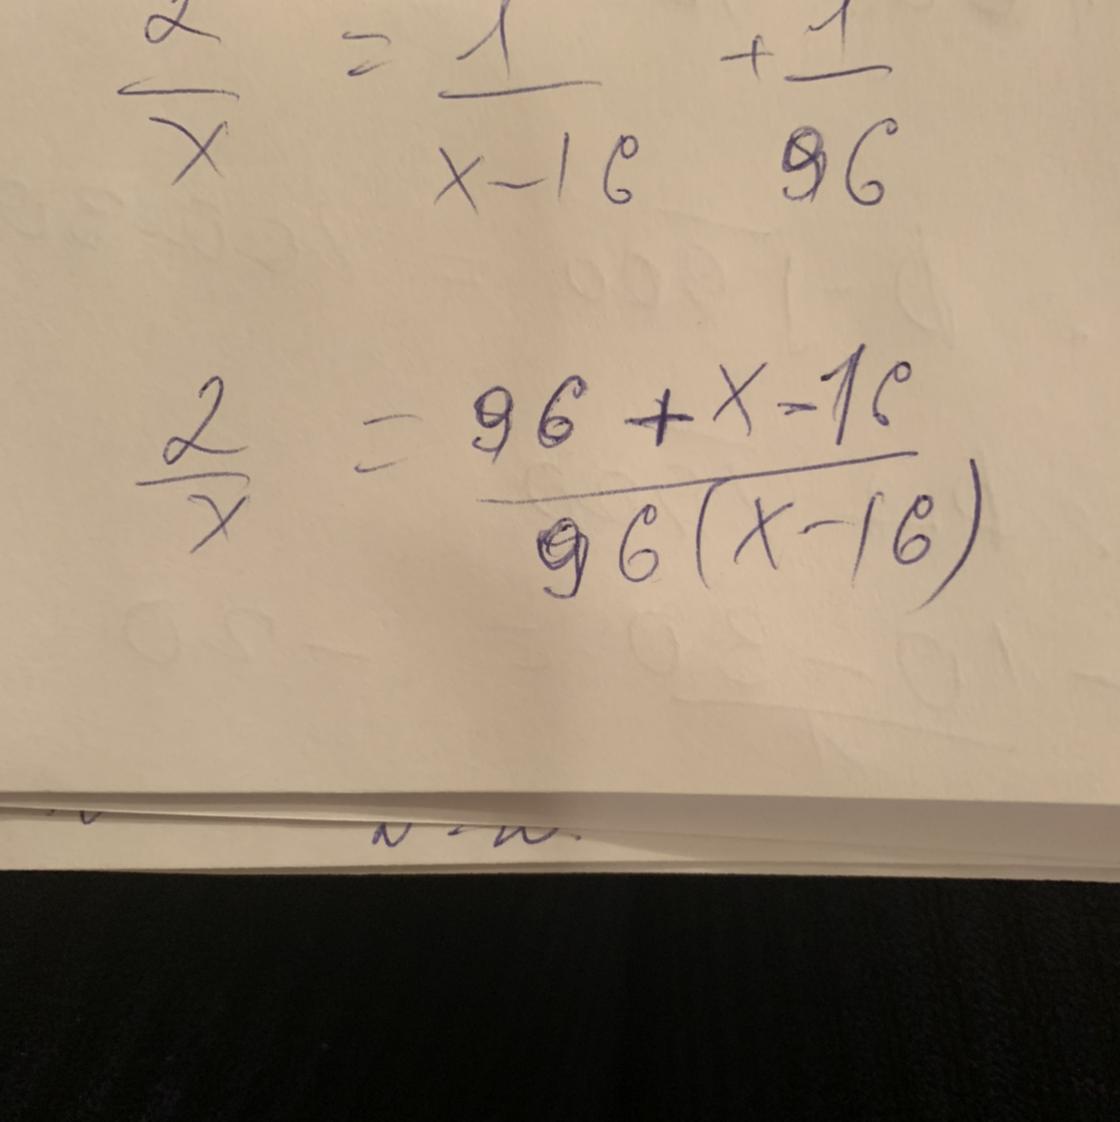 2/x = 1/(x-16) + 1/96
2/x = (96 + x-16)/(96(x-16))